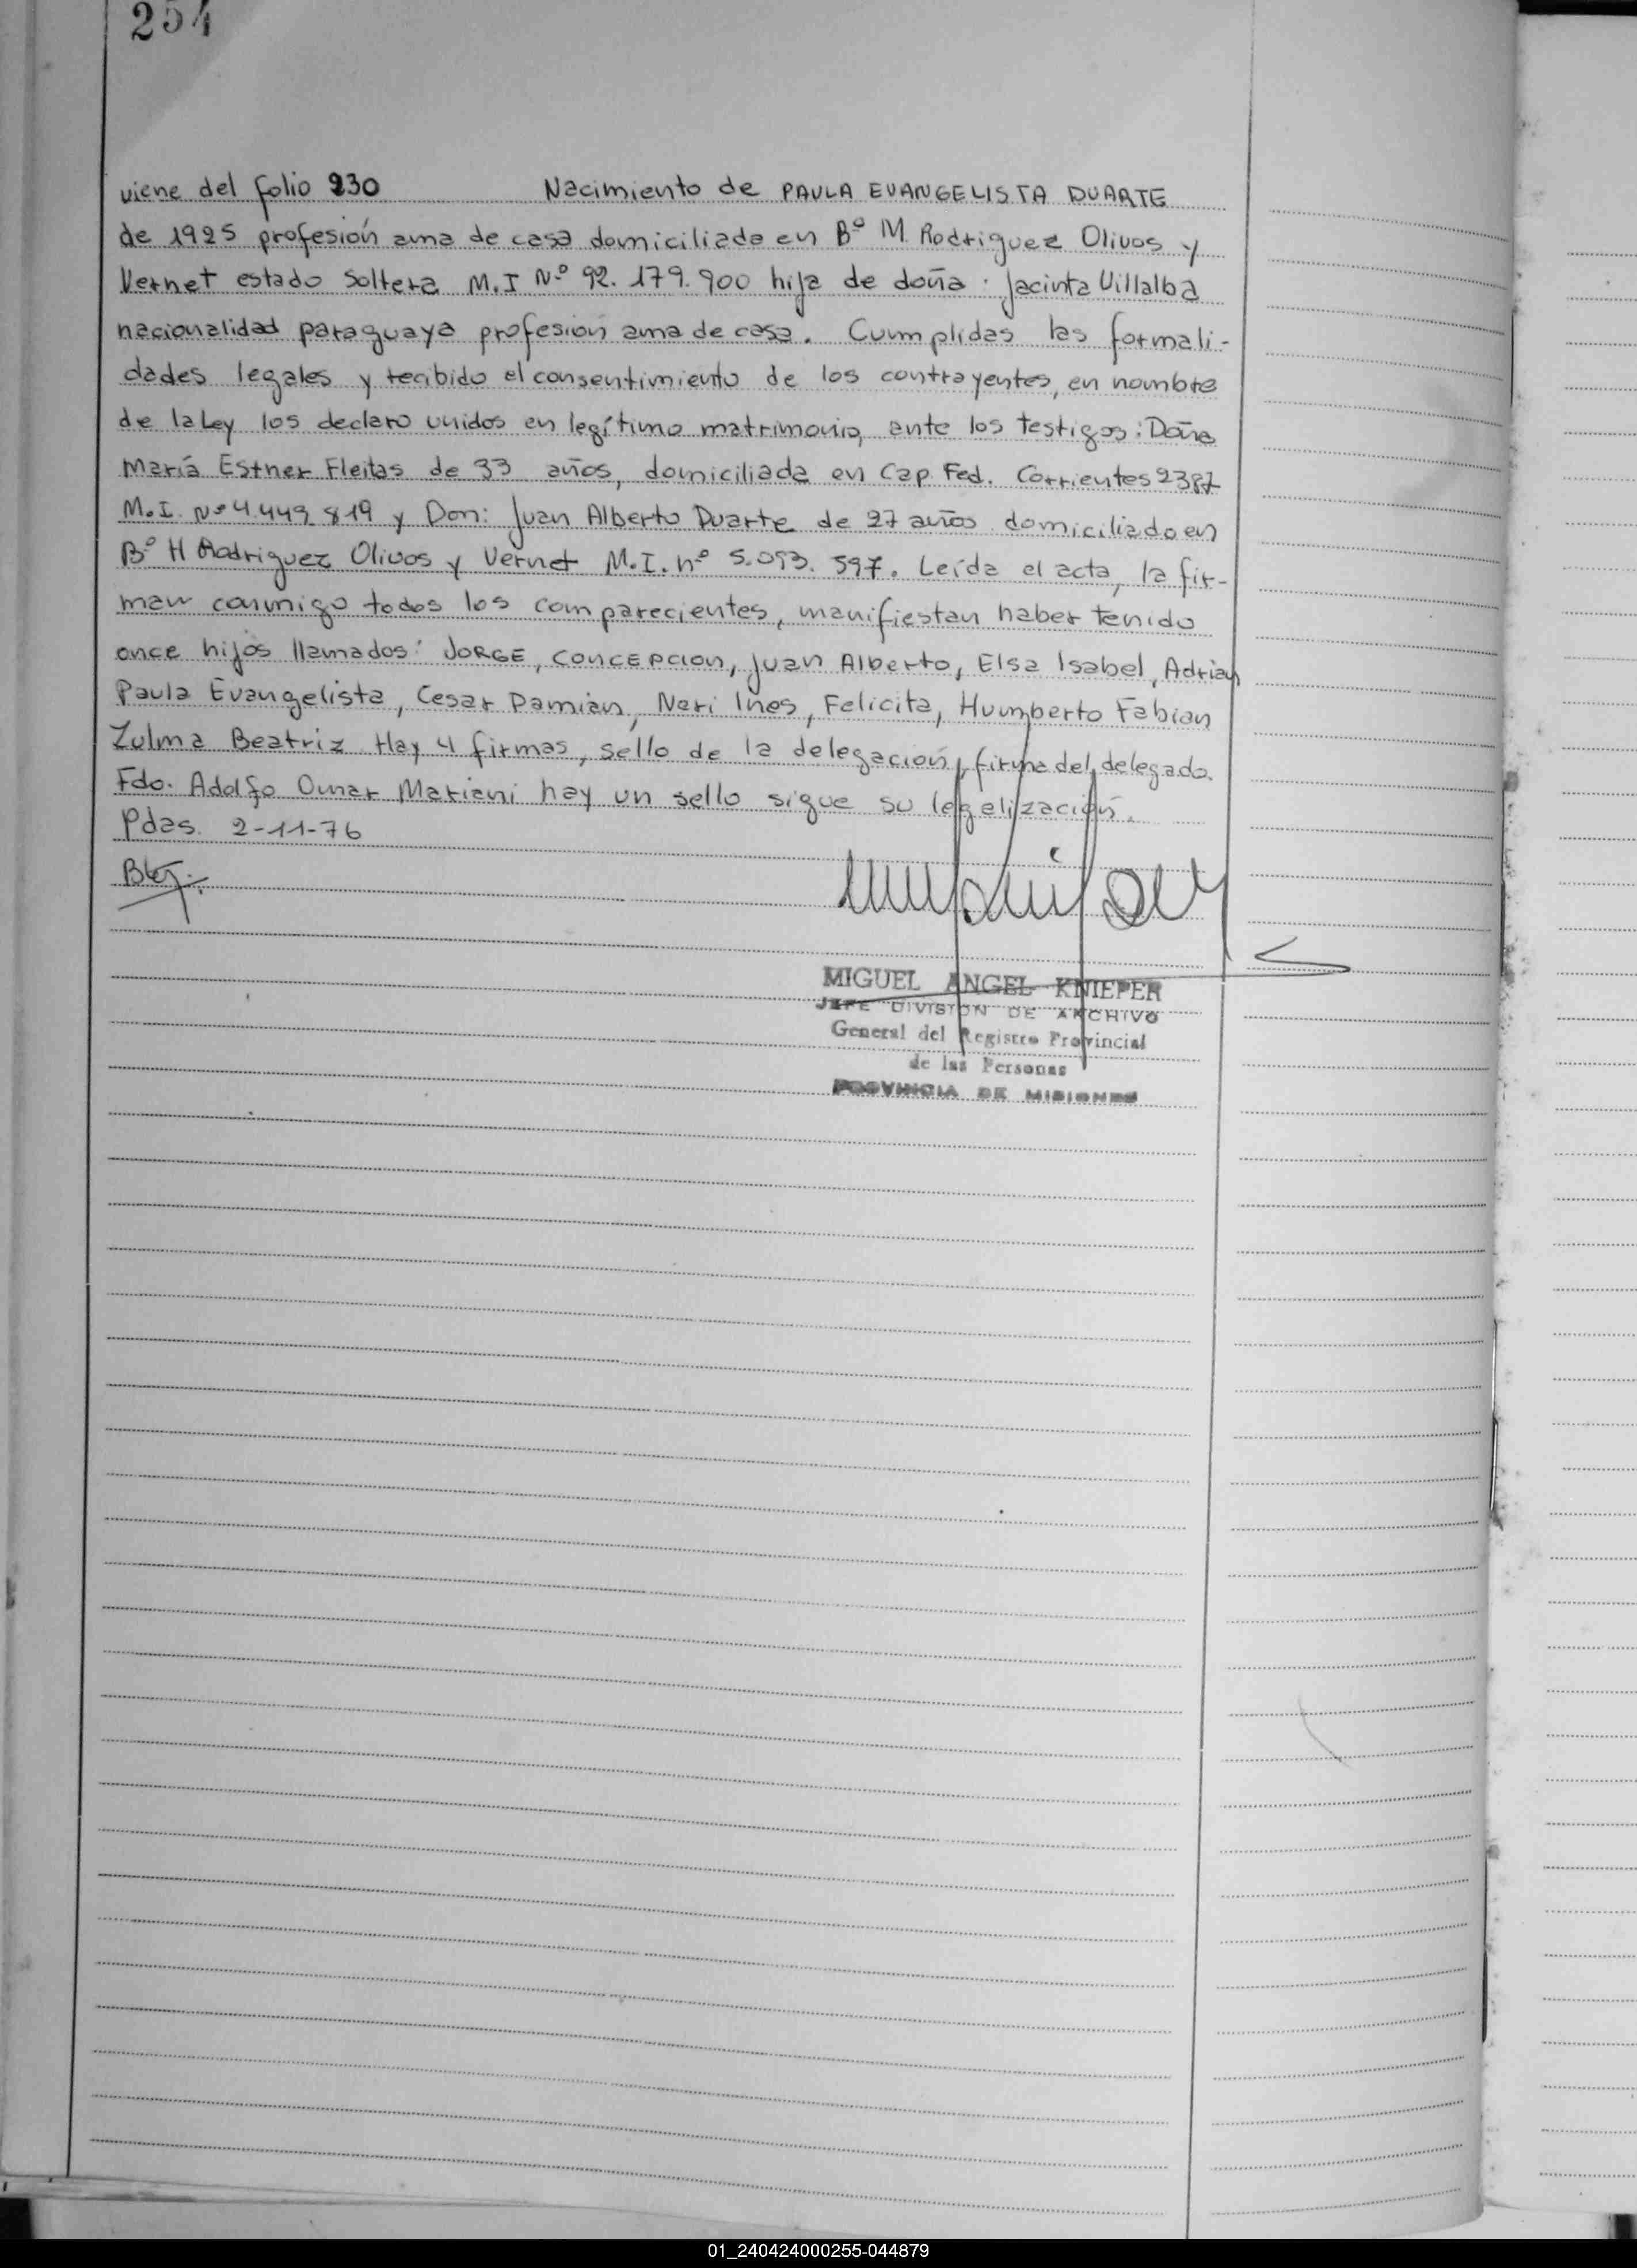 254
viene del folio 230 Nacimiento de PAULA EVANGELISTA DUARTE
de 1925 profesión ama de casa domiciliada en Bº M. Rodriguez Olivos y
Vernet estado soltera M.I Nº 92.179.900 hija de doña: Jacinta Villalba
nacionalidad paraguaya profesión ama de casa. Cumplidas las formali-
dades legales y recibido el consentimiento de los contrayentes, en nombre
de la Ley los declaro unidos en legítimo matrimonio, ante los testigos: Doña
María Esther Fleitas de 33 años, domiciliada en Cap. Fed. Corrientes 2387
M.I. Nº 4.449.819 y Don: Juan Alberto Duarte de 27 años domiciliado en
Bº H Rodriguez Olivos y Vernet M.I. nº 5.093.597. Leída el acta, la fir-
man conmigo todos los comparecientes, manifiestan haber tenido
once hijos llamados: JORGE, CONCEPCION, Juan Alberto, Elsa Isabel, Adrian
Paula Evangelista, Cesar Damian, Neri Ines, Felicita, Humberto Fabian
Zulma Beatriz Hay 4 firmas, sello de la delegación, firma del delegado.
Fdo. Adolfo Omar Mariani hay un sello sigue su legalización.
Pdas. 2-11-76
MIGUEL ANGEL KNIEPER
JEFE DIVISION DE ARCHIVO
General del Registro Provincial
de las Personas
PROVINCIA DE MISIONES
01_240424000255-044879